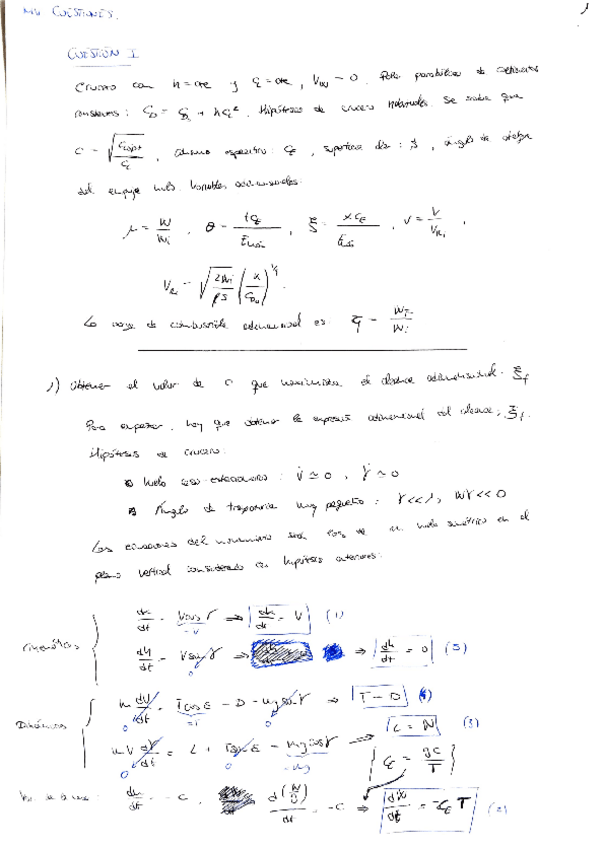 CUESTIONES.
CUESTIÓN I
Crucero con h = cte y = cte, V_w = 0. Polar parabólica de coeficientes
constantes: C_D = + k C_L^2. Hipótesis de crucero. Se sabe que
c = √(C_Lopt / C_L), consumo específico: C_E, superficie alar: S, ángulo de ataque
del empuje nulo. Variables adimensionales:
μ = W/W_i, θ = t g / , ξ = x C_E / , v = V/V_Ri,
V_Ri = √(2W_i / ρS) (k / C_D0)^1/4.
La carga de combustible adimensional es ζ = W_F / W_i
1) Obtener el valor de c que maximiza el alcance adimensional. ξ_f
Para empezar, hay que obtener la expresión adimensional del alcance, ξ_f.
Hipótesis de crucero:
Vuelo casi-estacionario: V̇ ≃ 0, γ̇ ≃ 0
Ángulo de trayectoria muy pequeño: γ << 1, Wγ << 0
Las ecuaciones del movimiento son las de un vuelo simétrico en el
plano vertical considerado con hipótesis anteriores:
dx/dt = V cos γ ⇒ dx/dt = V (1)
Cinemáticas dh/dt = V sin γ ⇒ dh/dt = 0 (5)
Dinámicas m dV/dt = T cos ε - D - mg sin γ ⇒ T = D (4)
mV dγ/dt = L + T sin ε - mg cos γ ⇒ L = W (3)
{ C_E = gC/T }
dm/dt = -C, d(W/g)/dt = -C ⇒ dW/dt = -C_E T (2)